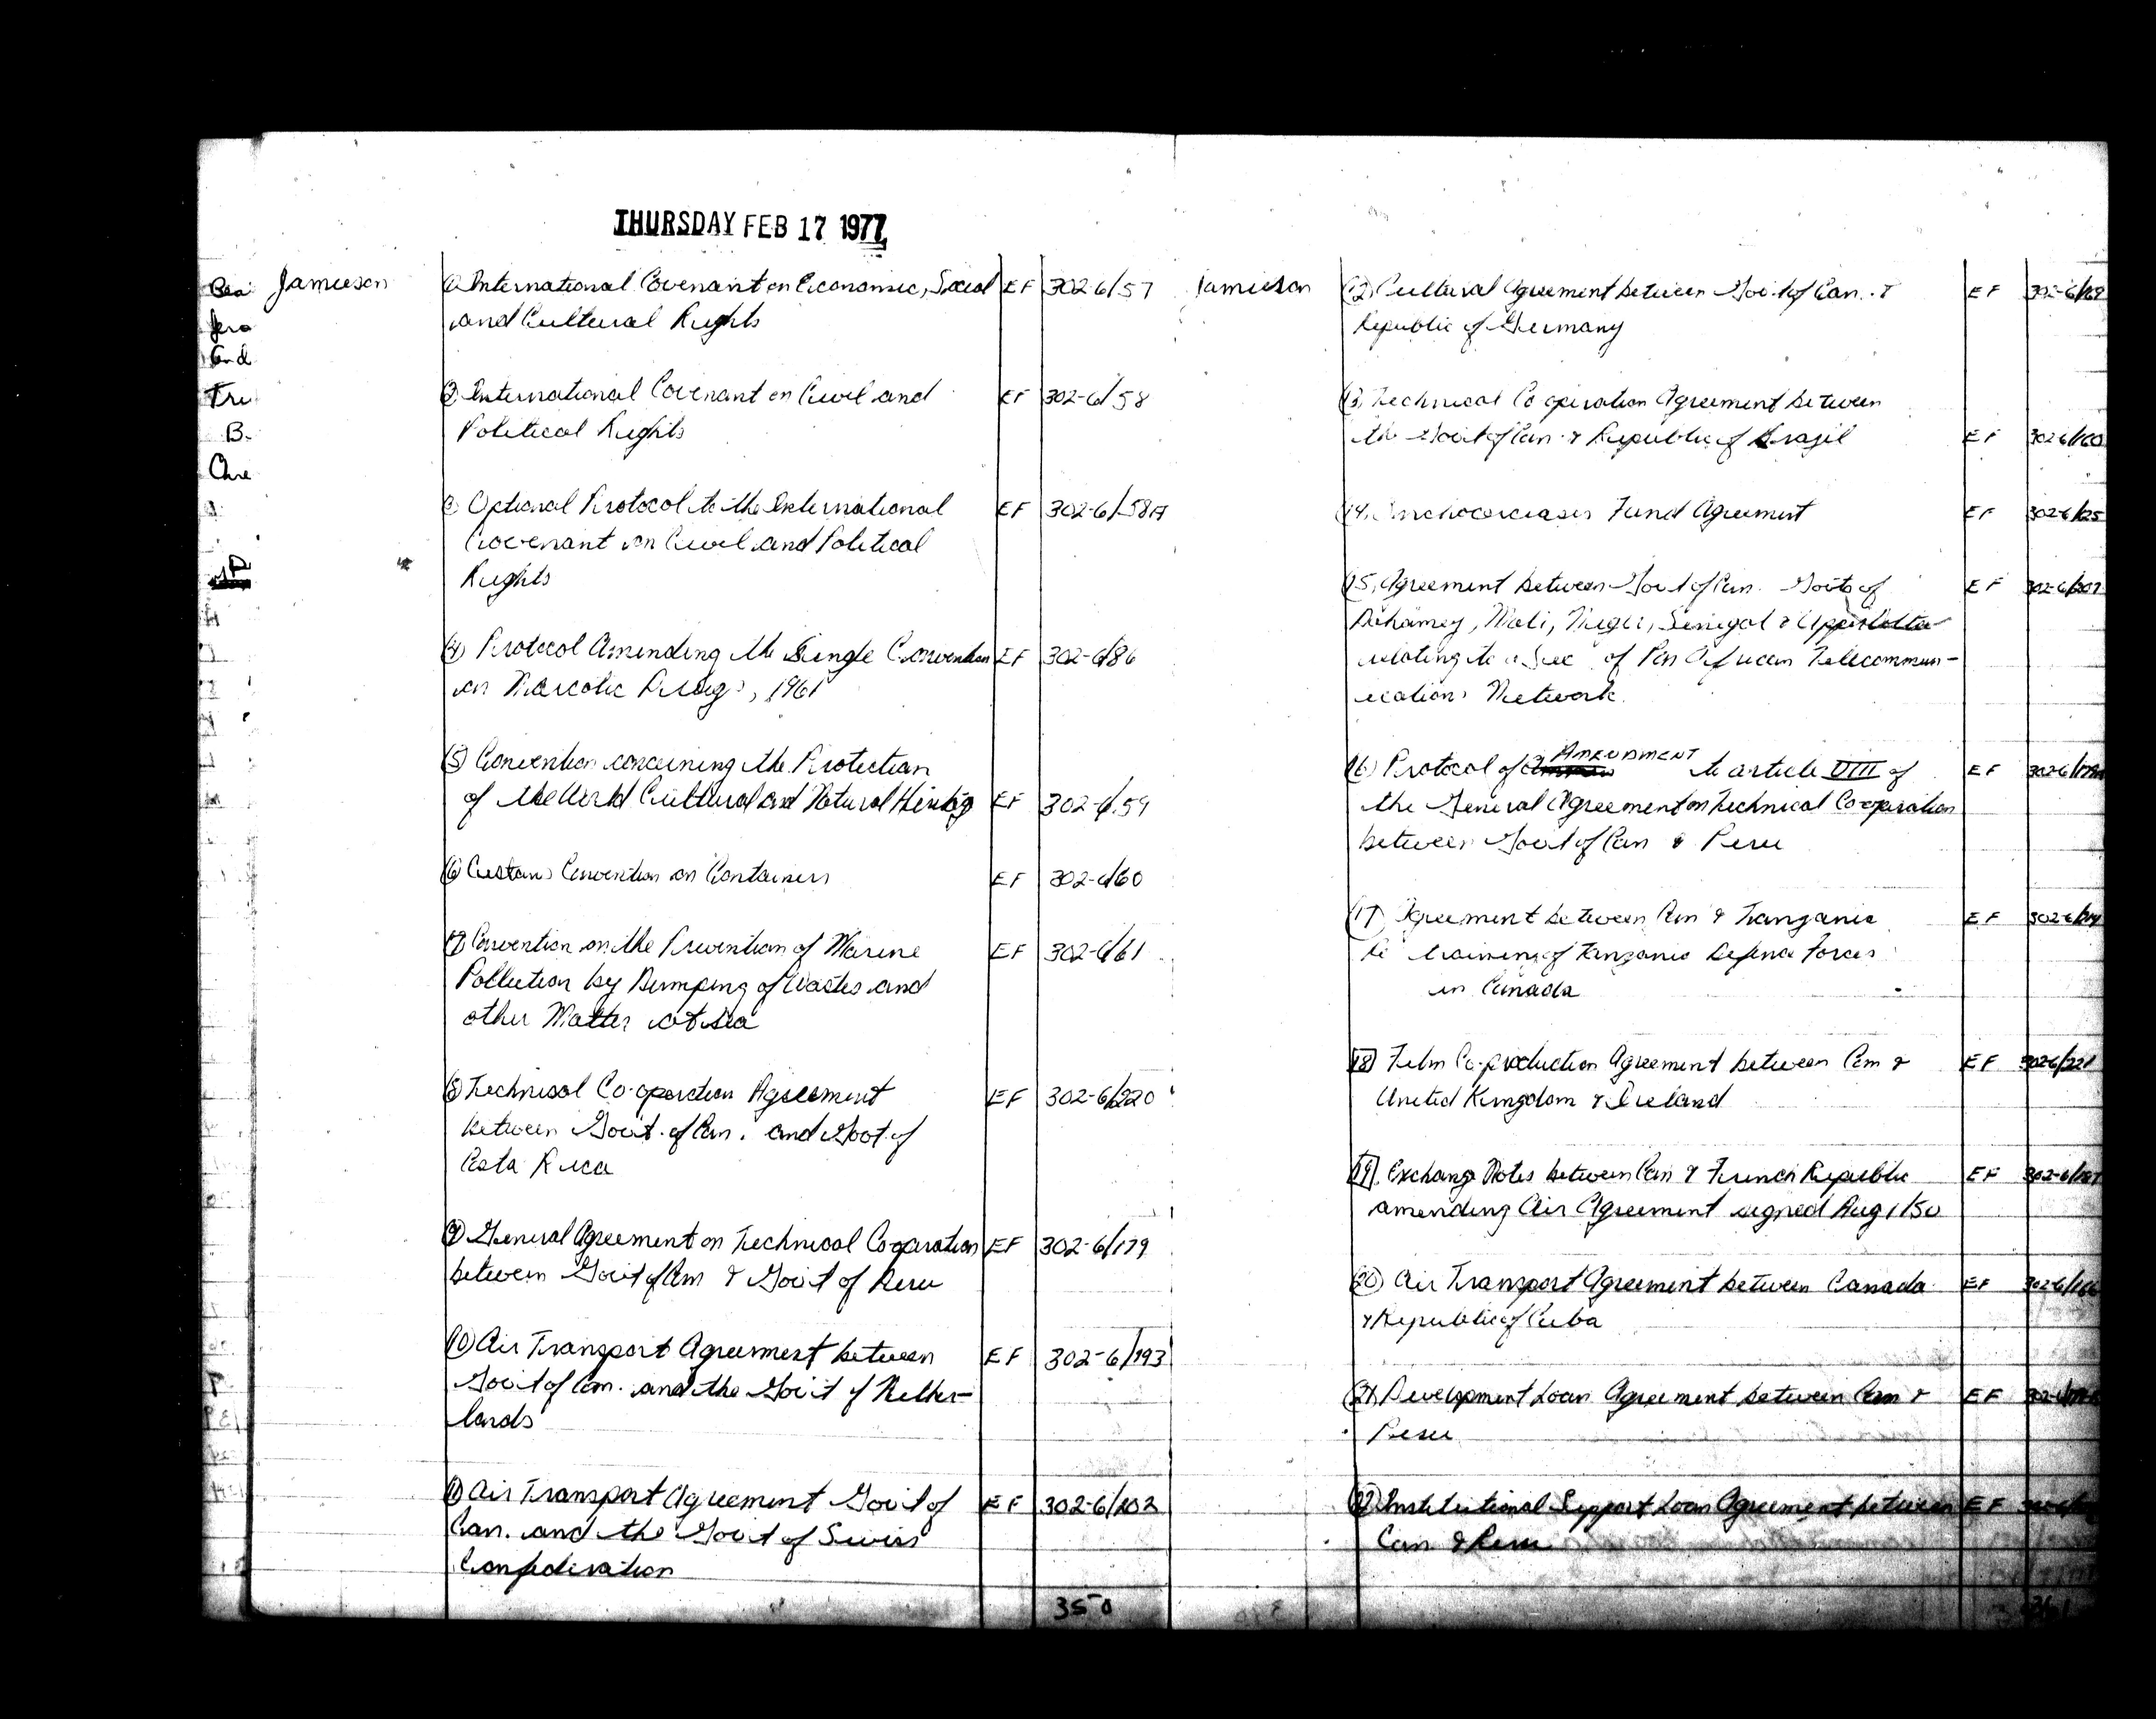 THURSDAY FEB 17 1977
Jamieson
① International Covenant on Economic, Social EF 302-6/57
and Cultural Rights
② International Covenant on Civil and EF 302-6/58
Political Rights
③ Optional Protocol to the International EF 302-6/58A
Covenant on Civil and Political
Rights
④ Protocol Amending the Single Convention EF 302-6/86
on Narcotic Drugs, 1961
⑤ Convention concerning the Protection
of the World Cultural and Natural Heritage EF 302-6/59
⑥ Customs Convention on Containers EF 302-6/60
⑦ Convention on the Prevention of Marine EF 302-6/61
Pollution by Dumping of Wastes and
other Matter at sea
⑧ Technical Co-operation Agreement EF 302-6/220
between Gov't. of Can. and Gov't. of
Costa Rica
⑨ General Agreement on Technical Cooperation EF 302-6/179
between Gov't of Can & Gov't of Peru
⑩ Air Transport Agreement between EF 302-6/193
Gov't of Can. and the Gov't of Nether-
lands
⑪ Air Transport Agreement Gov't of EF 302-6/102
Can. and the Gov't of Swiss
Confederation
350
Jamieson
⑫ Cultural Agreement between Gov't of Can. & EF
Republic of Germany
⑬ Technical Co operation Agreement between
the Gov't of Can. & Republic of Brazil EF
⑭ Fund Agreement EF
⑮ Agreement between Gov't of Can. Gov'ts of EF
Dahomey, Mali, Niger, Senegal & Upper Volta
relating to a Sec of Pan African Telecommun-
ications Network.
⑯ Protocol of AMENDMENT to article VIII of EF
the General Agreement on Technical Co-operation
between Gov't of Can & Peru
⑰ Agreement between Can & Tanzania EF
Re training of Tanzania Defence Forces
in Canada
18 Film Co-production Agreement between Can & EF 302-6/221
United Kingdom & Ireland
19 Exchange Notes between Can & French Republic EF
amending Air Agreement signed Aug 1/50
⑳ Air Transport Agreement between Canada EF
& Republic of Cuba
㉑ Development Loan Agreement between Can & EF
Peru
㉒ Institutional Support Loan Agreement between EF
Can & Peru